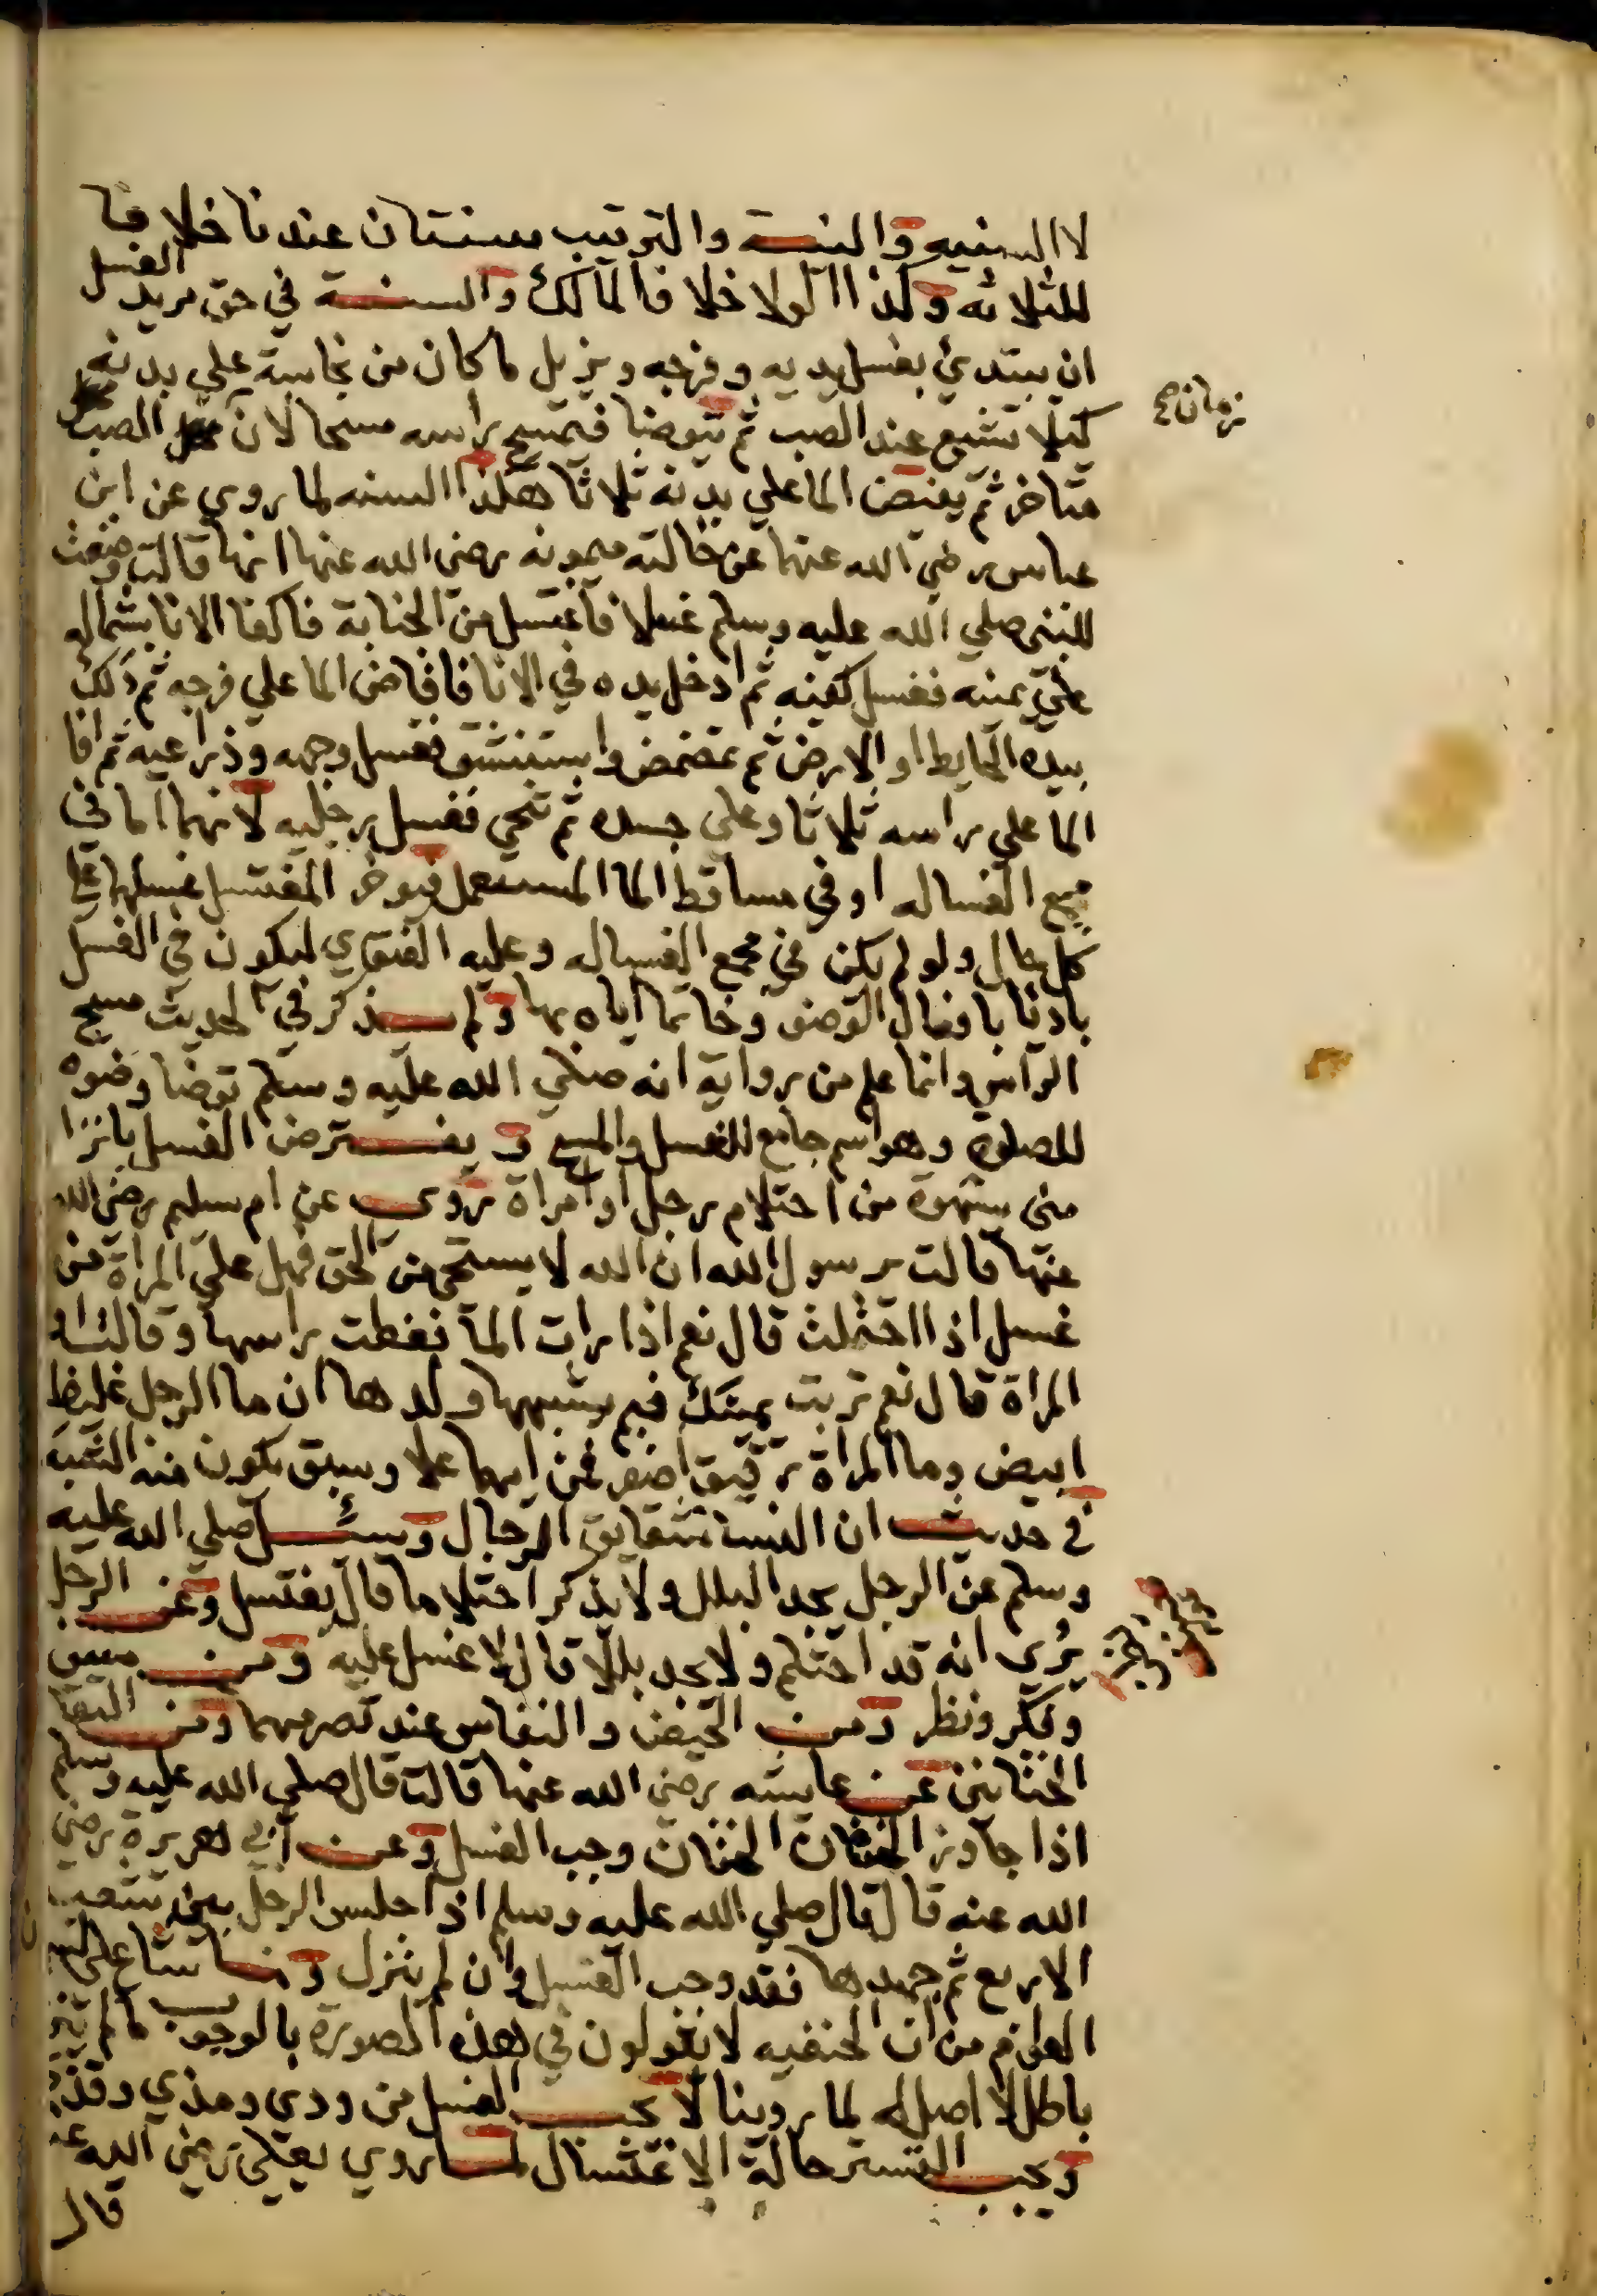 لا السنيه والنية والترتيب سنتان عندنا خلافا
للثلاثه وكذا الولا خلافا لمالك والسنة في حق مريد الغسل
ان يبتدئ بغسل يديه وفرجه ويزيل ما كان من نجاسة علي بدنه
كيلا تشيع عند الصب ثم يتوضا فيمسح راسه مسحا لان الصب
زمان صح
متاخر ثم يفيض الما علي بدنه ثلاثا هكذا السنه لما روي عن ابن
عباس رضي الله عنهما عن خالته ميمونه رضي الله عنها انها قالت وضعت
للنبي صلي الله عليه وسلم غسلا فاغتسل من الجنابة فاكفا الانا بشماله
علي يمينه فغسل كفيه ثم ادخل يده في الانا فافاض الما علي فرجه ثم دلك
بيده الحايط او الارض ثم تمضمض واستنشق فغسل وجهه وذراعيه ثم افا
الما علي راسه ثلاثا وعلي جسده ثم تنحي فغسل رجليه لانهما اما في
مجمع الغساله او في مساقط الما المستعمل فيوخر المغتسل غسلهما علي
كل حال ولو لم يكن في مجمع الغساله وعليه الفتوي ليكون في الغسل
باديا بافعال الوضو وخاتما اياه بها ولم يذكر في الحديث مسح
الراس وانما علم من رواية انه صلي الله عليه وسلم توضا وضوه
للصلوة وهو اسم جامع للغسل والمسح و يفترض الغسل بانزا
مني بشهوة من احتلام رجل او امراة روي عن ام سليم رضي الله
عنها قالت يرسول الله ان الله لا يستحي من الحق فهل علي المراة من
غسل اذا احتملت قال نعم اذا رات الما فغطت راسها وقالت او
المراة قال نعم تربت يمينك فبم يشبهها ولدها ان ما الرجل غليظ
ابيض وما المراة رقيق اصفر فمن ايهما علا وسبق يكون منه الشبه
في حديث ان النسا شقايق الرجال وسئل صلي الله عليه
وسلم عن الرجل يجد البلل ولا يذكر احتلاما قال يغتسل وعن الرجل
يري انه قد احتلم ولا يجد بللا قال لا غسل عليه ومن
وفكر ونظر ومن الحيض والنفاس عند تصرمهما ومن التقا
الختانين عن عايشه رضي الله عنها قالت قال صلي الله عليه وسلم
اذا جاوز الختان الختان وجب الغسل وعن ابي هريرة رضي
الله عنه قال قال صلي الله عليه وسلم اذا جلس الرجل بين شعب
الاربع ثم جهدها فقد وجب الغسل وان لم ينزل وما شاع علي
العوام من ان الحنفيه لا يقولون في هذه الصورة بالوجوب ما لم
باطل لا اصل له لما روينا لا يجب الغسل من ودي ومذي وقد
ويجب التستر حالة الاغتسال لما روي يعلي رضي الله عنه
قال